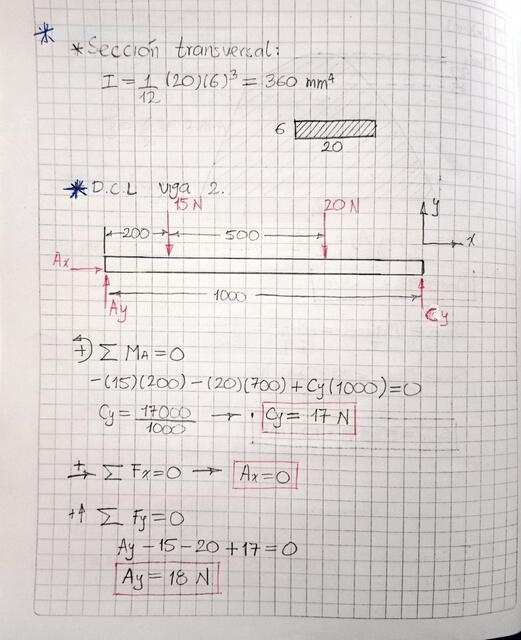 *
* Sección transversal:
I = 1/12 (20)(6)³ = 360 mm⁴
6
20
* D.C.L viga 2.
15 N 20 N y
200 500 x
Ax
1000
Ay Cy
+) Σ MA = 0
-(15)(200) - (20)(700) + Cy(1000) = 0
Cy = 17000/1000 → · Cy = 17 N
+→ Σ Fx = 0 → Ax = 0
+↑ Σ Fy = 0
Ay - 15 - 20 + 17 = 0
Ay = 18 N